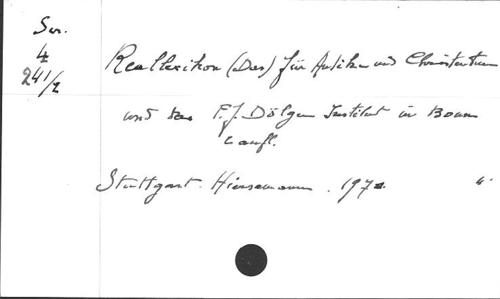 Ser.
4
241/2
Reallexikon (Das) für Antike und Christentum
und das F.J. Dölger Institut in Bonn
Stuttgart. Hiersemann. 197
4°